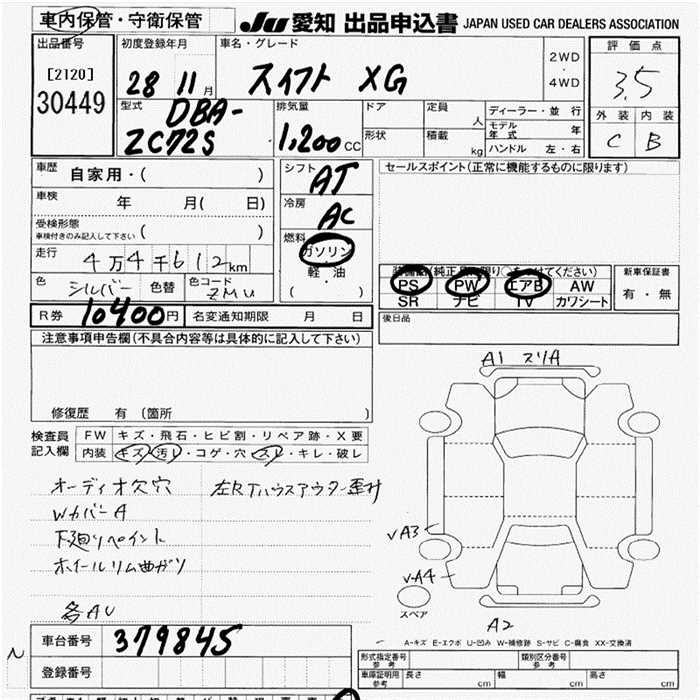 車内保管・守衛保管
JU 愛知 出品申込書 JAPAN USED CAR DEALERS ASSOCIATION
出品番号
[2120]
30449
初度登録年月
28 11月
車名・グレード
スイフト XG
2WD
・
4WD
評価点
3.5
外装 内装
C B
型式
DBA-
ZC72S
排気量
1,200cc
ドア
形状
定員 人
積載 kg
ディーラー・並行
モデル年式 年
ハンドル 左・右
車歴
自家用・( )
車検
年 月( 日)
受検形態
車検付きのみ記入して下さい ( )
走行
4万4千612km
色
シルバー 色替
色コード
ZMU
シフト
AT
冷房
AC
燃料
ガソリン
・
軽油
・
( )
セールスポイント(正常に機能するものに限ります)
PS PW エアB AW
SR ナビ TV カワシート
新車保証書
有・無
R券 10400円 名変通知期限 月 日
後日品
注意事項申告欄(不具合内容等は具体的に記入して下さい)
修復歴 有 (箇所 )
検査員
記入欄
FW キズ・飛石・ヒビ割・リペア跡・X要
内装 キズ・汚レ・コゲ・穴・スレ・キレ・破レ
オーディオ欠穴 左Rハウスアウター歪
WカバーA
下廻りペイント
ホイールリム曲ガリ
各AU
A1 スリA
A3
A4
スペア
A2
A-キズ E-エクボ U-凹み W-補修跡 S-サビ C-腐食 XX-交換済
N
車台番号 379845
登録番号
形式指定番号 参考
類別区分番号 参考
車庫証明用 参考
長さ cm 幅 cm 高さ cm